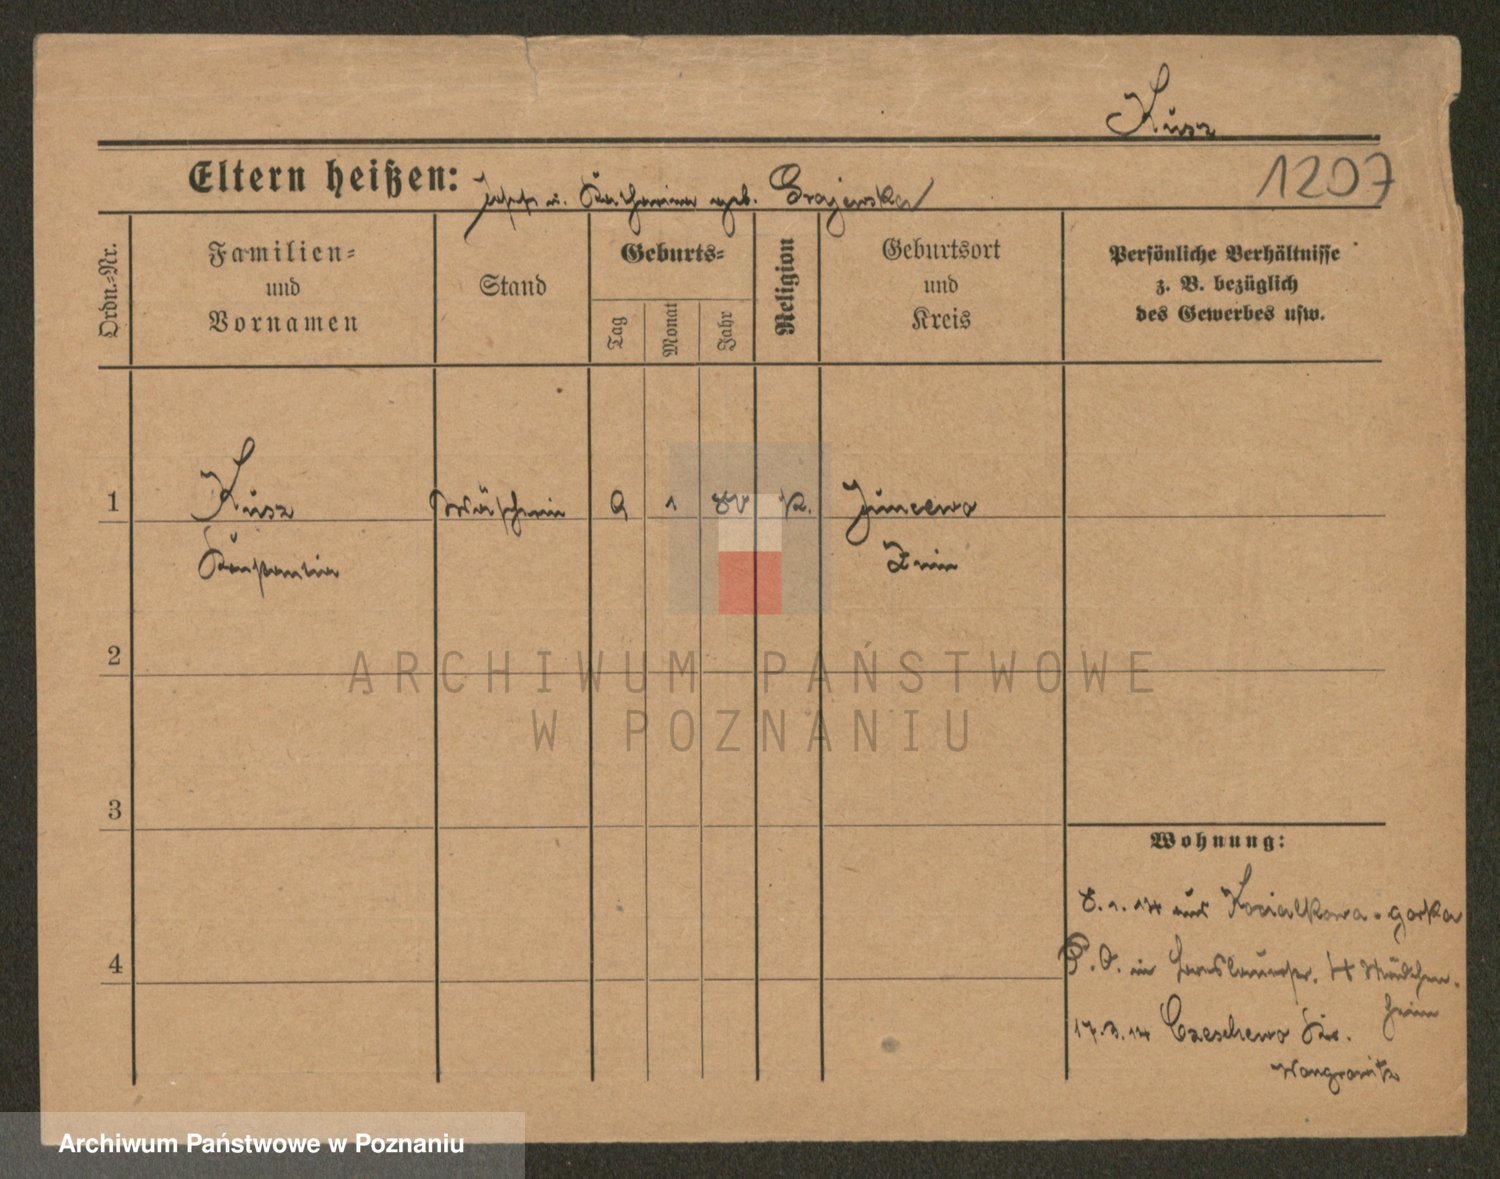 Kusz
Eltern heißen: Joseph u. Katharina geb. Grajewska
1207
Ordn.-Nr.
Familien-
und
Vornamen
Stand
Geburts-
Tag
Monat
Jahr
Religion
Geburtsort
und
Kreis
Persönliche Verhältnisse
z. B. bezüglich
des Gewerbes usw.
1
Kusz
Konstantia
Wäscherin
9
1
K.
Juncewo
Znin
2
ARCHIWUM PAŃSTWOWE
W POZNANIU
3
Wohnung:
8. 1. 14 aus Kocialkowa-gorka
4
P. O. in Mädchen-
heim
17. 3. 14 Czeschewo Kr.
Wongrowitz
Archiwum Państwowe w Poznaniu